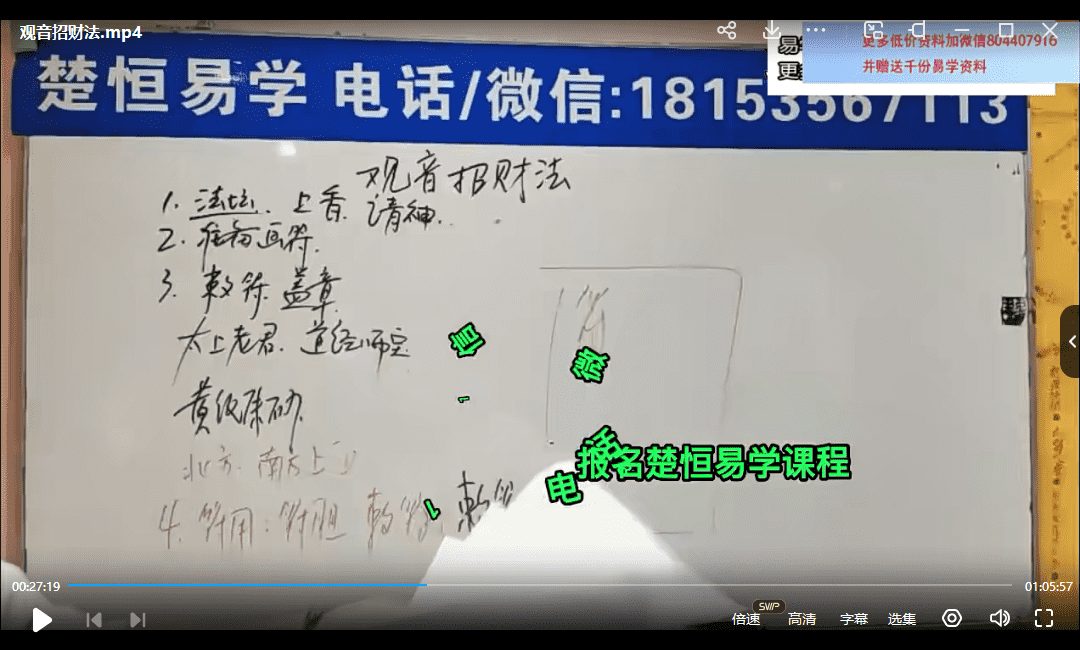 观音招财法.mp4
更多低价资料加微信804407916
并赠送千份易学资料
楚恒易学 电话/微信:18153567113
观音招财法
1. 法坛. 上香. 请神..
2. 画符.
3. 敕符. 盖章
太上老君. 道经师宝
黄纸朱砂
北方. 南方上
4. 符用: 符胆 敕符. 敕符
符
信
微
1
话
报名楚恒易学课程
电
1
00:27:19
01:05:57
SVIP
倍速
高清
字幕
选集